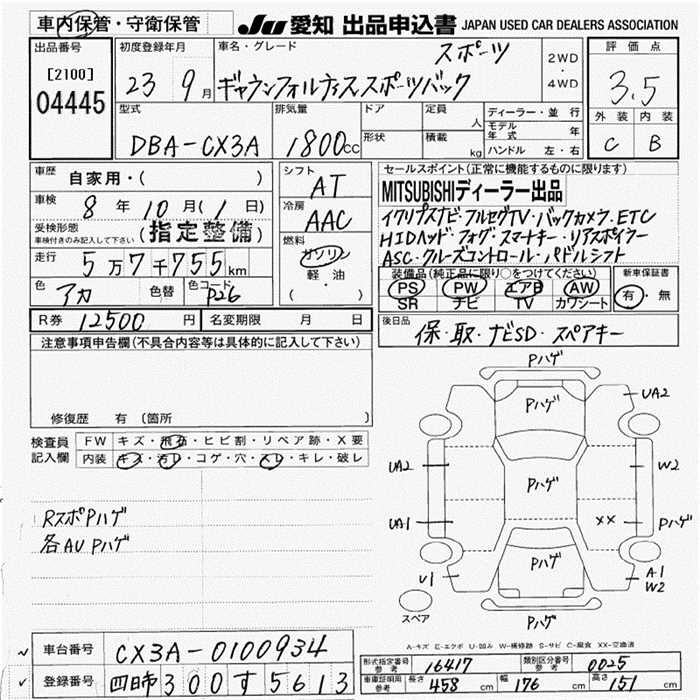 車内保管・守衛保管
JU 愛知 出品申込書 JAPAN USED CAR DEALERS ASSOCIATION
出品番号
[2100]
04445
初度登録年月
23年9月
車名・グレード
スポーツ
ギャランフォルティススポーツバック
2WD
・
4WD
評価点
3.5
外装 内装
C B
型式
DBA-CX3A
排気量
1800cc
ドア
形状
定員 人
積載 kg
ディーラー・並行
モデル年式 年
ハンドル 左・右
車歴 自家用・( )
車検 8年10月(1日)
受検形態
車検付きのみ記入して下さい
(指定整備)
走行 5万7千755km
色 アカ 色替 色コード P26
シフト
AT
冷房
AAC
燃料
ガソリン
軽・油
( )
セールスポイント(正常に機能するものに限ります)
MITSUBISHIディーラー出品
イクリプスナビ・フルセグTV・バックカメラ・ETC
HIDヘッド・フォグ・スマートキー・リアスポイラー
ASC・クルーズコントロール・パドルシフト
装備品(純正品に限り○をつけてください)
PS PW エアB AW
SR ナビ TV カワシート
新車保証書
有・無
R券 12500円 名変期限 月 日
後日品
保・取・ナビSD・スペアキー
注意事項申告欄(不具合内容等は具体的に記入して下さい)
修復歴 有(箇所
検査員
記入欄
FW キズ・飛石・ヒビ割・リペア跡・X要
内装 キズ・汚レ・コゲ・穴・スレ・キレ・破レ
RスポPハゲ
各AUPハゲ
Pハゲ
Pハゲ
UA2
UA2
Pハゲ
W2
UA1
XX
Pハゲ
U1
Pハゲ
A1
W2
スペア
Pハゲ
A-キズ E-エクボ U-凹み W-補修跡 S-サビ C-腐食 XX-交換済
車台番号 CX3A-0100934
登録番号 四日市300す5613
形式指定番号
参考
16417
類別区分番号
参考
0025
車庫証明用
参考
長さ 458cm 幅 176cm 高さ 151cm